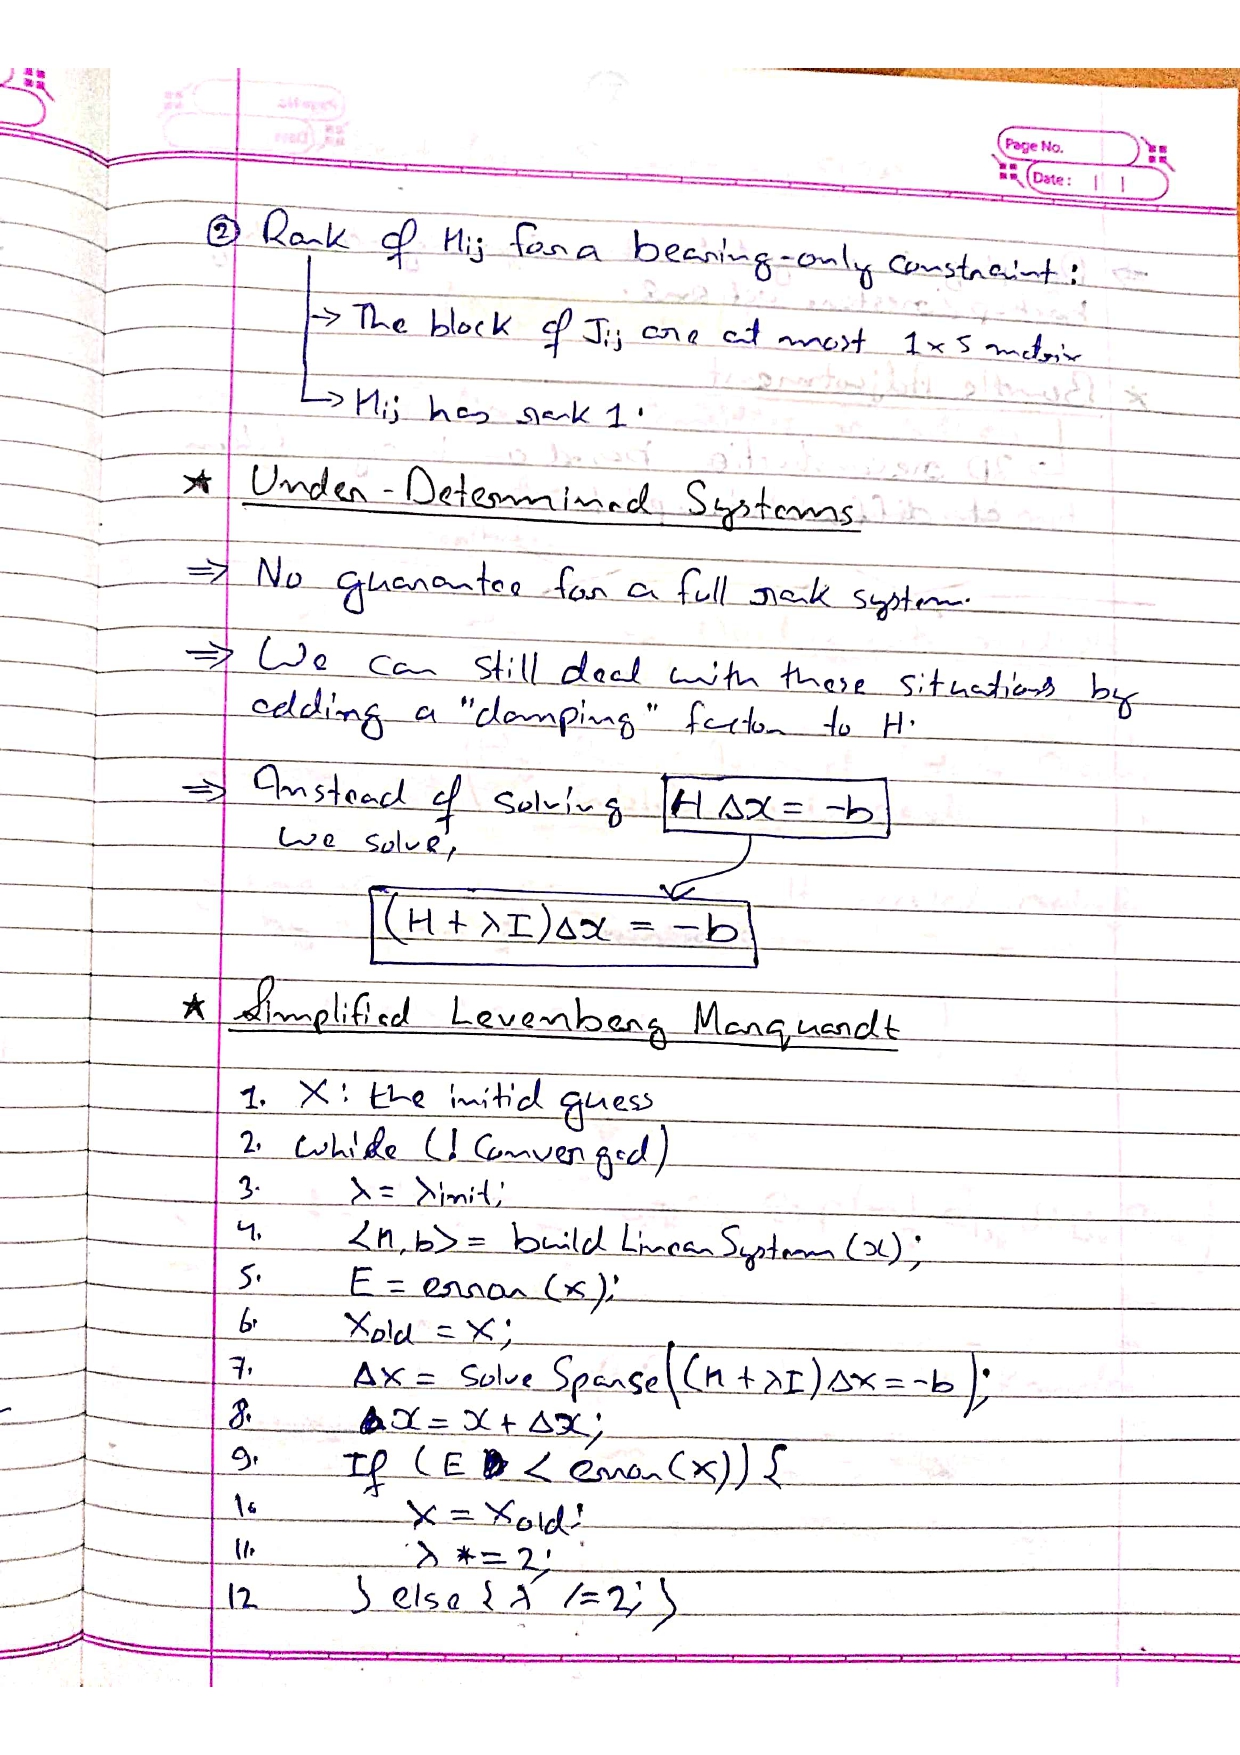 Page No.
Date:
② Rank of Hij for a bearing-only constraint:
→ The block of Jij are at most 1×5 matrix
→ Hij has rank 1.
★ Under-Determined Systems
⇒ No guarantee for a full rank system.
⇒ We can still deal with these situations by
adding a "damping" factor to H.
⇒ Instead of solving HΔx = -b
we solve,
(H + λI)Δx = -b
★ Simplified Levenberg Marquardt
1. X: the initial guess
2. While (! Converged)
3. λ = λinit;
4. <H, b> = build Linear System (x);
5. E = error (x);
6. Xold = X;
7. ΔX = Solve Sparse((H + λI)ΔX = -b);
8. x = x + Δx;
9. If (E < error(x)) {
10 X = Xold;
11. λ *= 2;
12 } else { λ /= 2; }